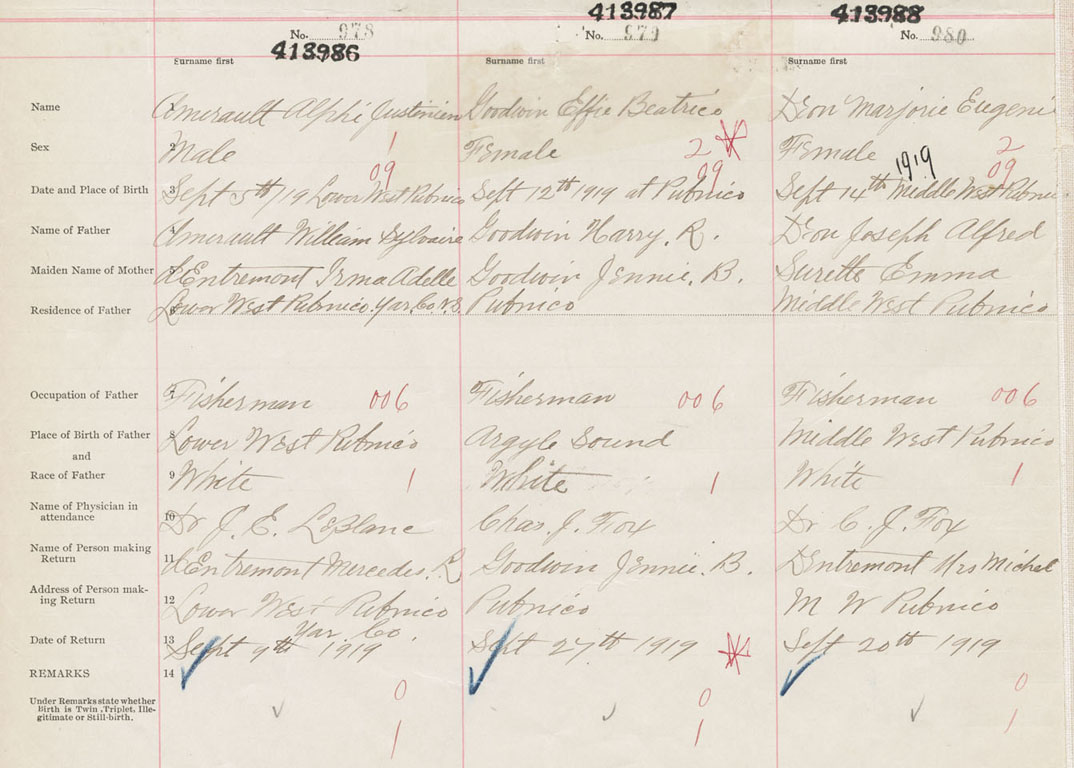 413986 413987 413988
No. 978 No. 979 No. 980
Surname first Surname first Surname first
Name 1 Amerault Alphé Justinien Goodwin Effie Beatrice Deon Marjorie Eugeni
Sex 2 Male 1 Female 2 Female 2
09 09 1919 09
Date and Place of Birth 3 Sept 5th /19 Lower West Pubnico Sept 12th 1919 at Pubnico Sept 14th Middle West Pubnico
Name of Father 4 Amerault William Sylvaire Goodwin Harry. R. Deon Joseph Alfred
Maiden Name of Mother 5 d'Entremont Irma Adelle Goodwin Jennie. B. Surette Emma
Residence of Father 6 Lower West Pubnico. Yar. Co. N.S. Pubnico Middle West Pubnico
Occupation of Father 7 Fisherman 006 Fisherman 006 Fisherman 006
Place of Birth of Father 8 Lower West Pubnico Argyle Sound Middle West Pubnico
and
Race of Father 9 White 1 White 1 White 1
Name of Physician in
attendance 10 Dr J. E. LeBlanc Chas. J. Fox Dr C. J. Fox
Name of Person making
Return 11 d'Entremont Mercedes. R Goodwin Jennie. B. Dentremont Mrs Michel
Address of Person mak-
ing Return 12 Lower West Pubnico Pubnico M W Pubnico
Yar. Co.
Date of Return 13 Sept 9th 1919 Sept 27th 1919 Sept 20th 1919
REMARKS 14
0 0 0
Under Remarks state whether
Birth is Twin, Triplet, Ille-
gitimate or Still-birth.
1 1 1